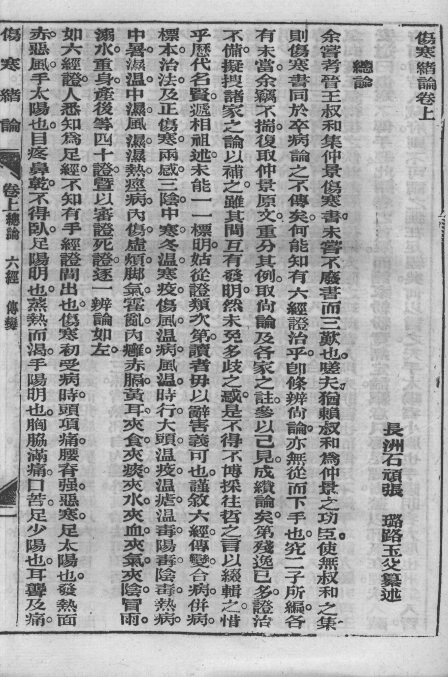 傷寒緒論卷上
長洲石頑張　璐路玉父纂述
總論
余嘗考晉王叔和集仲景傷寒書。未嘗不廢書而三歎也。嗟夫。猶賴叔和為仲景之功臣。使無叔和之集。
則傷寒書同於卒病論之不傳矣。何能知有六經證治乎。即條辨尚論。亦無從而下手也。究二子所編。各
有未當。余竊不揣。復取仲景原文。重分其例。取尚論及各家之註。參以己見。成纘論矣。第殘逸已多。證治
不備。擬搜諸家之論以補之。雖其間互有發明。然未免多歧之惑。是不得不博採往哲之言以綴輯之。惜
乎歷代名賢。遞相祖述。未能一一標明。姑從證類次第。讀者毋以辭害義可也。謹敘六經傳變。合病併病。
標本治法。及正傷寒。兩感。三陰中寒。冬溫。寒疫。傷風。溫病。風溫。時行。大頭。溫疫。溫瘧。溫毒。陽毒。陰毒。熱病。
中暑。濕溫。中濕。風濕。濕熱。痙病。內傷。虛煩。腳氣。霍亂。內癰。赤膈。黃耳。夾食。夾痰。夾水。夾血。夾氣。夾陰。冒雨。
溺水。重身。產後等四十證。暨以審證死證。逐一辨論如左。
如六經證。人悉知為足經。不知有手經證間出也。傷寒初受病時。頭項痛。腰脊強。惡寒。足太陽也。發熱面
赤惡風。手太陽也。目疼鼻乾不得臥。足陽明也。蒸熱而渴。手陽明也。胸脇滿痛口苦。足少陽也。耳聾及痛
傷寒緒論　卷上總論　六經　傳變